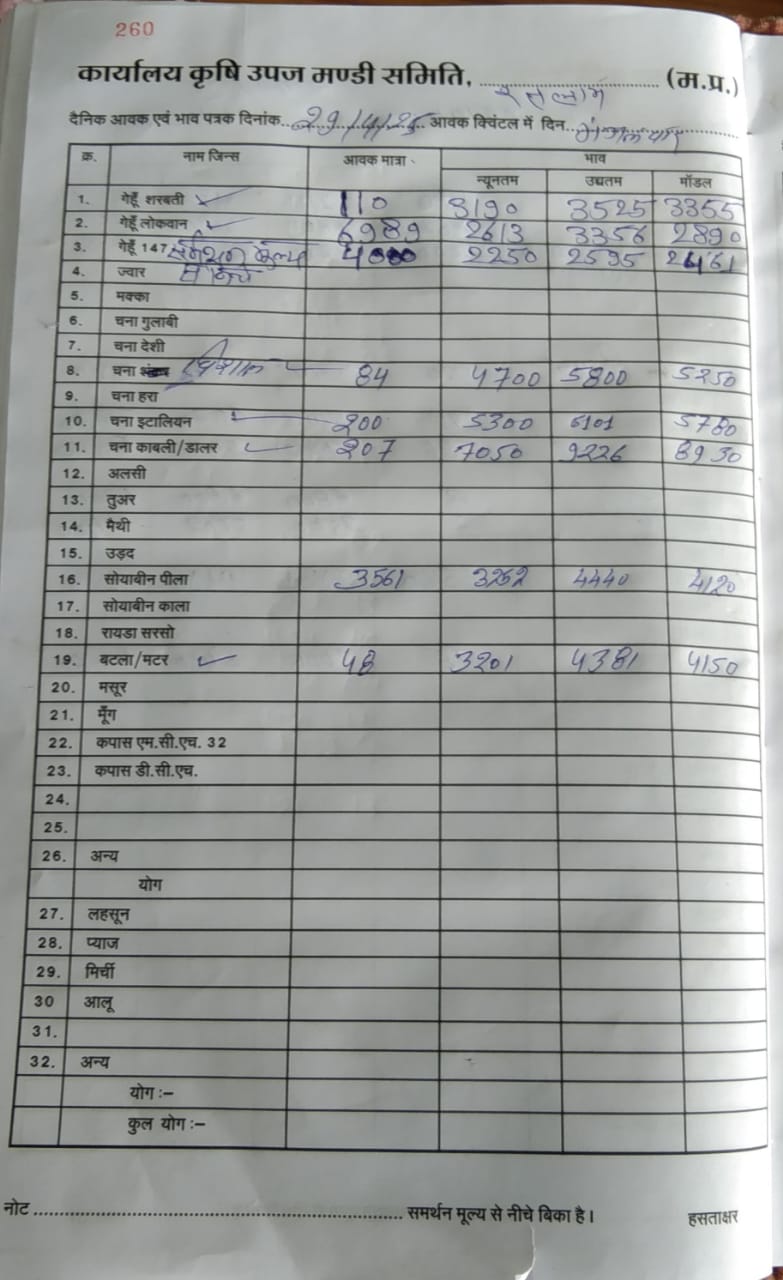 260
कार्यालय कृषि उपज मण्डी समिति, रतलाम (म.प्र.)
दैनिक आवक एवं भाव पत्रक दिनांक 29/4/25 आवक क्विंटल में दिन मंगलवार
क्र. नाम जिन्स आवक मात्रा भाव
न्यूनतम उच्चतम मॉडल
1. गेहूँ शरबती 110 3190 3525 3355
2. गेहूँ लोकवान 6989 2613 3356 2890
3. गेहूँ 147 मूल्य 2250 2595 2461
4. ज्वार
5. मक्का
6. चना गुलाबी
7. चना देशी
8. चना विशाल 84 4700 5800 5250
9. चना हरा
10. चना इटालियन 200 5300 6101 5780
11. चना काबली/डालर 207 7050 9226 8930
12. अलसी
13. तुअर
14. मैथी
15. उड़द
16. सोयाबीन पीला 3561 3262 4440 4120
17. सोयाबीन काला
18. रायडा सरसो
19. बटला/मटर 48 3201 4381 4150
20. मसूर
21. मूँग
22. कपास एम.सी.एच. 32
23. कपास डी.सी.एच.
24.
25.
26. अन्य
योग
27. लहसून
28. प्याज
29. मिर्ची
30 आलू
31.
32. अन्य
योग :–
कुल योग :–
नोट समर्थन मूल्य से नीचे बिका है।
हसताक्षर